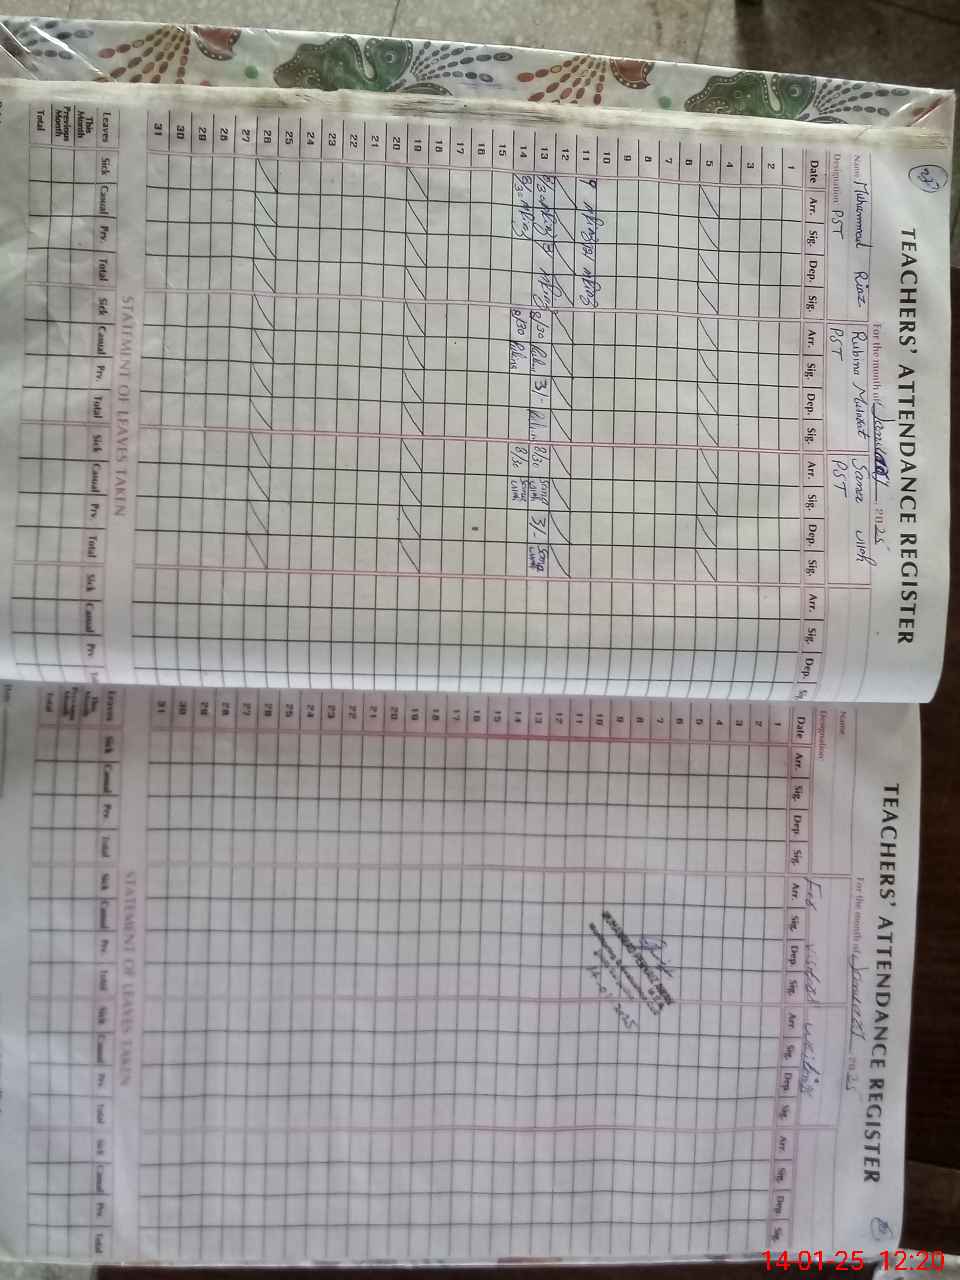 TEACHERS' ATTENDANCE REGISTER
For the month of January 2025
Name Muhammad Riaz Rubina Musarat Sana Ullah
Designation PST PST PST
Date Arr. Sig. Dep. Sig. Arr. Sig. Dep. Sig. Arr. Sig. Dep. Sig. Arr. Sig. Dep.
1
2
3
4
5
6
7
8
9
10
11 9
12
13 8/30 3/ 8/30 3/- 8/30 Sana Ullah 3/- Sana Ullah
14 8/30 8/30 8/30 Sana Ullah
15
16
17
18
19
20
21
22
23
24
25
26
27
28
29
30
31
STATEMENT OF LEAVES TAKEN
Leaves Sick Casual Prv. Total Sick Casual Prv. Total Sick Casual Prv. Total Sick Casual Prv.
This Month
Previous Month
Total
TEACHERS' ATTENDANCE REGISTER
For the month of January 2025
Name
Designation
For visitors writing
Date Arr. Sig. Dep. Sig. Arr. Sig. Dep. Sig. Arr. Sig. Dep. Sig. Arr. Sig. Dep. Sig.
1
2
3
4
5
6
7
8
9
10
11
12
13
14
15
16
17
18
19
20
21
22
23
24
25
26
27
28
29
30
31
14-01-2025
STATEMENT OF LEAVES TAKEN
Leaves Sick Casual Prv. Total Sick Casual Prv. Total Sick Casual Prv. Total Sick Casual Prv. Total
This Month
Previous Month
Total
14-01-25 12:20